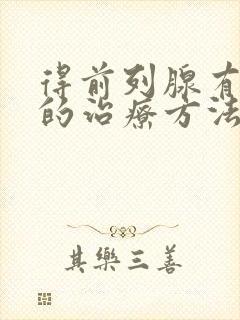 得前列腺有
的治療方法
其樂三善